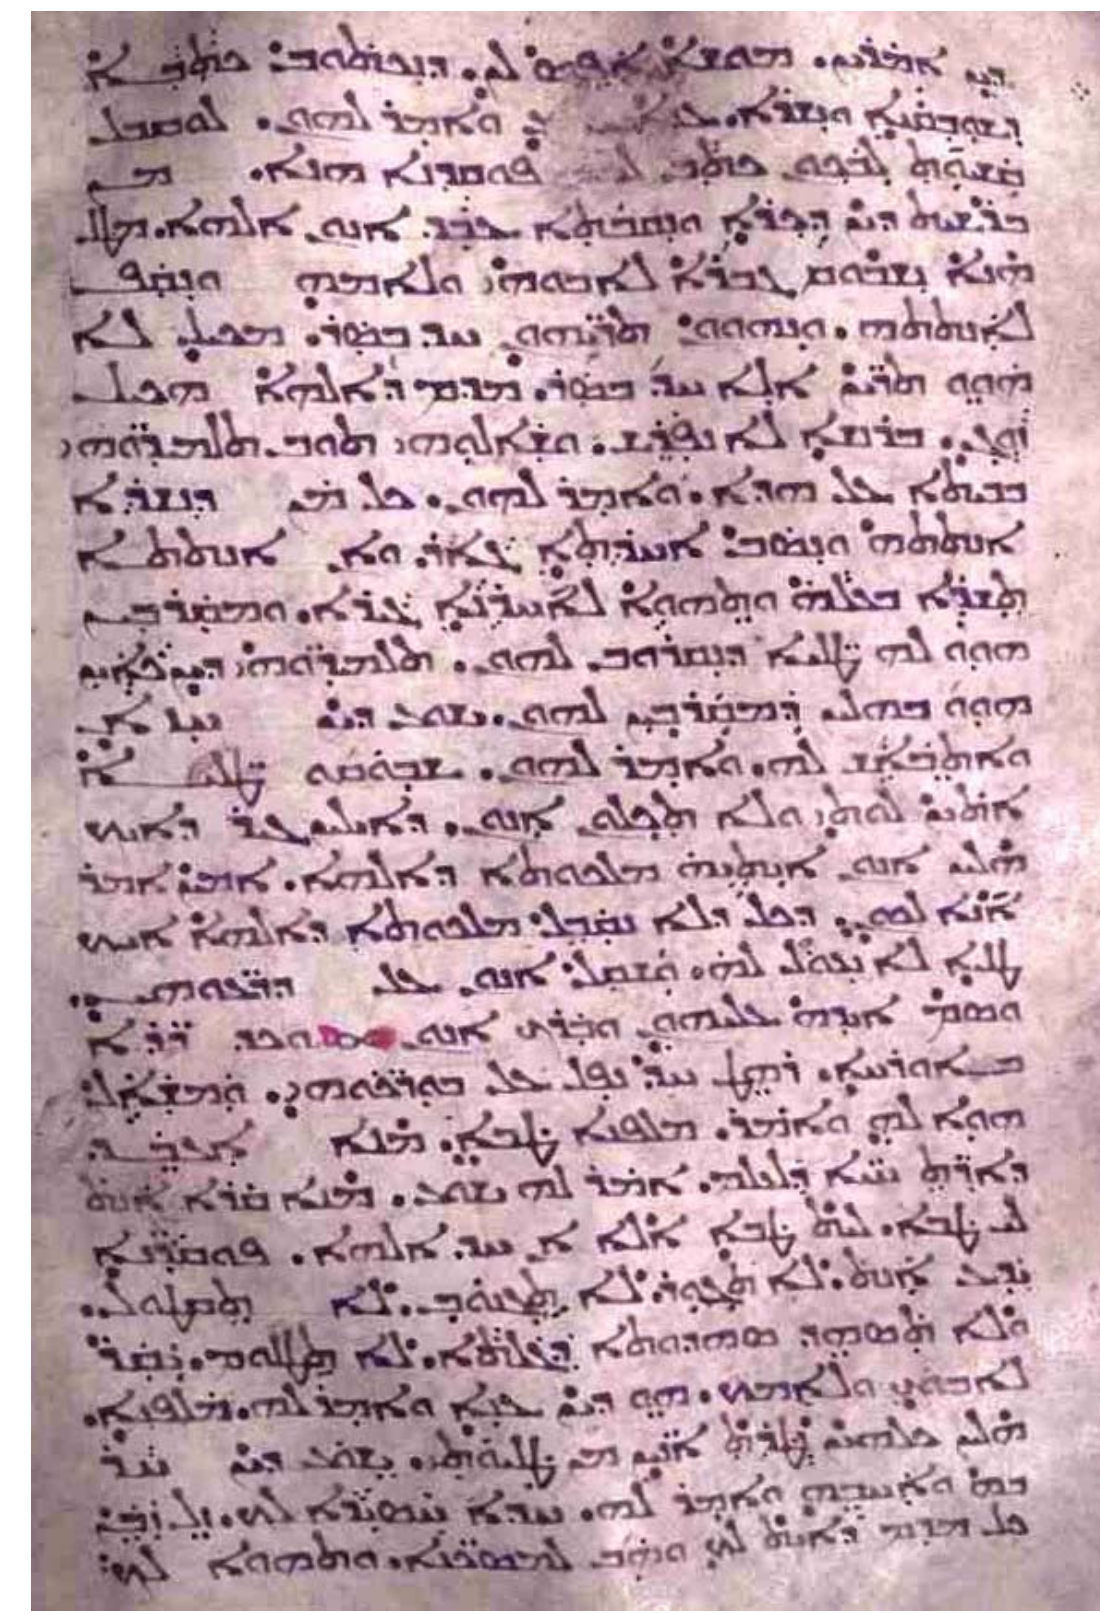 ܕܝܢ ܐܡܪܝܢ. ܡܘܫܐ ܐܦܣ ܠܢ. ܕܢܟܬܘܒ ܟܬܒܐ
ܕܫܘܒܩܢܐ ܘܢܫܪܐ. ܥܢܐ ܘܐܡܪ ܠܗܘܢ. ܠܘܩܒܠ
ܩܫܝܘܬ ܠܒܟܘܢ ܟܬܒ ܠܟܘܢ ܦܘܩܕܢܐ ܗܢܐ. ܡܢ
ܒܪܫܝܬ ܕܝܢ ܕܟܪܐ ܘܢܩܒܬܐ ܥܒܕ ܐܢܘܢ ܐܠܗܐ. ܡܛܠ
ܗܢܐ ܢܫܒܘܩ ܓܒܪܐ ܠܐܒܘܗܝ ܘܠܐܡܗ ܘܢܩܦ
ܠܐܢܬܬܗ. ܘܢܗܘܘܢ ܬܪܝܗܘܢ ܚܕ ܒܣܪ. ܡܟܝܠ ܠܐ
ܗܘܘ ܬܪܝܢ ܐܠܐ ܚܕ ܒܣܪ. ܡܕܡ ܕܐܠܗܐ ܗܟܝܠ
ܙܘܓ. ܒܪܢܫܐ ܠܐ ܢܦܪܫ. ܘܫܐܠܘܗܝ ܬܘܒ ܬܠܡܝܕܘܗܝ
ܒܒܝܬܐ ܥܠ ܗܕܐ. ܘܐܡܪ ܠܗܘܢ. ܟܠ ܡܢ ܕܢܫܪܐ
ܐܢܬܬܗ ܘܢܣܒ ܐܚܪܬܐ ܓܐܪ. ܘܐܢ ܐܢܬܬܐ
ܬܫܪܐ ܒܥܠܗ ܘܬܗܘܐ ܠܐܚܪܢܐ ܓܝܪܐ. ܘܡܩܪܒܝܢ
ܗܘܘ ܠܗ ܛܠܝܐ ܕܢܩܪܘܒ ܠܗܘܢ. ܬܠܡܝܕܘܗܝ ܕܝܢ ܟܐܝܢ
ܗܘܘ ܒܗܠܝܢ ܕܡܩܪܒܝܢ ܠܗܘܢ. ܝܫܘܥ ܕܝܢ ܚܙܐ
ܘܐܬܒܐܫ ܠܗ. ܘܐܡܪ ܠܗܘܢ. ܫܒܘܩܘ ܛܠܝܐ
ܐܬܝܢ ܠܘܬܝ ܘܠܐ ܬܟܠܘܢ ܐܢܘܢ. ܕܐܝܠܝܢ ܓܝܪ ܕܐܝܟ
ܗܠܝܢ ܐܢܘܢ ܐܝܬܝܗ ܡܠܟܘܬܐ ܕܐܠܗܐ. ܐܡܝܢ ܐܡܪ
ܐܢܐ ܠܟܘܢ. ܕܟܠ ܕܠܐ ܢܩܒܠ ܡܠܟܘܬܐ ܕܐܠܗܐ ܐܝܟ
ܛܠܝܐ ܠܐ ܢܥܘܠ ܠܗ. ܘܫܩܠ ܐܢܘܢ ܥܠ ܕܪܥܘܗܝ.
ܘܣܡ ܐܝܕܗ ܥܠܝܗܘܢ ܘܒܪܟ ܐܢܘܢ ܘܟܕ ܪܕܐ
ܒܐܘܪܚܐ. ܪܗܛ ܚܕ ܢܦܠ ܥܠ ܒܘܪܟܘܗܝ. ܘܡܫܐܠ
ܗܘܐ ܠܗ ܘܐܡܪ. ܡܠܦܢܐ ܛܒܐ. ܡܢܐ ܐܥܒܕ
ܕܐܪܬ ܚܝܐ ܕܠܥܠܡ. ܐܡܪ ܠܗ ܝܫܘܥ. ܡܢܐ ܩܪܐ ܐܢܬ
ܠܝ ܛܒܐ. ܠܝܬ ܛܒܐ ܐܠܐ ܐܢ ܚܕ ܐܠܗܐ. ܦܘܩܕܢܐ
ܝܕܥ ܐܢܬ. ܠܐ ܬܓܘܪ. ܠܐ ܬܓܢܘܒ. ܠܐ ܬܩܛܘܠ.
ܘܠܐ ܬܣܗܕ ܣܗܕܘܬܐ ܕܓܠܬܐ. ܠܐ ܬܛܠܘܡ. ܝܩܪ
ܠܐܒܘܟ ܘܠܐܡܟ. ܗܘ ܕܝܢ ܥܢܐ ܘܐܡܪ ܠܗ. ܡܠܦܢܐ.
ܗܠܝܢ ܟܠܗܝܢ ܢܛܪܬ ܐܢܝܢ ܡܢ ܛܠܝܘܬܝ. ܝܫܘܥ ܕܝܢ ܚܪ
ܒܗ ܘܐܚܒܗ ܘܐܡܪ ܠܗ. ܚܕܐ ܚܣܝܪܐ ܠܟ. ܙܠ ܙܒܢ
ܟܠ ܡܕܡ ܕܐܝܬ ܠܟ ܘܗܒ ܠܡܣܟܢܐ. ܘܬܗܘܐ ܠܟ